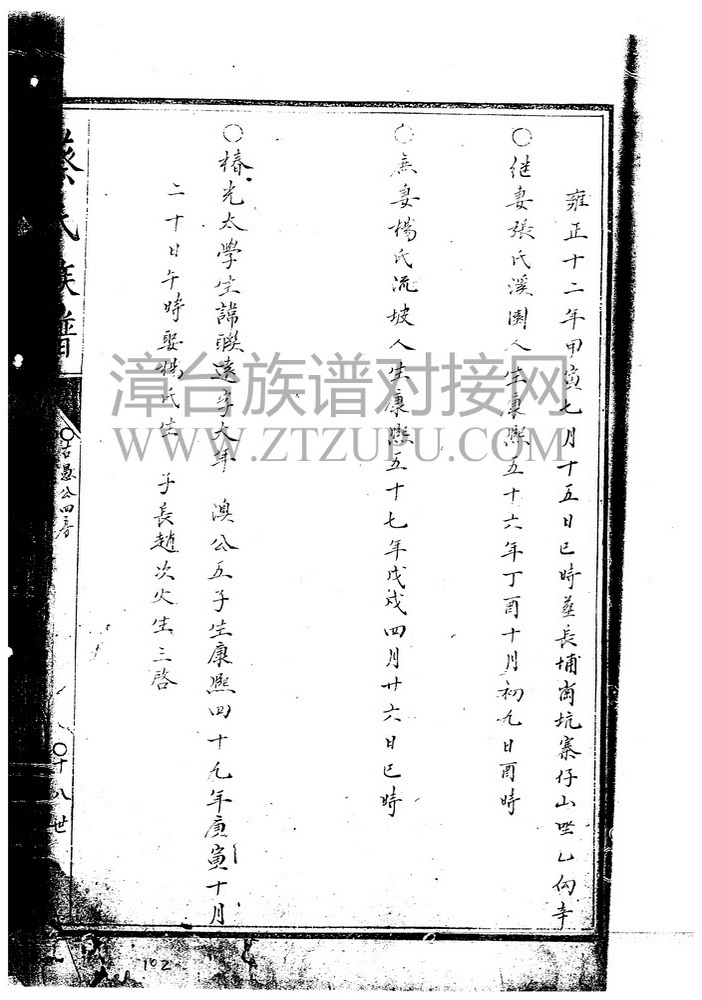 雍正十二年甲寅七月十五日巳時塟長埔崗坑寨仔山坐乙向辛
○継妻張氏溪園人生康熙五十六年丁酉十月初九日酉時
○庶妻楊氏流坡人生康熙五十七年戊戌四月廿六日巳時
○椿光太學生諱聯逵字大年 澳公五子生康熙四十九年庚寅十月
二十日午時娶楊氏生 子長趙次火生三啓
蔡氏族譜
○古愚公四房
○十八世
102
漳台族谱对接网
WWW.ZTZUPU.COM